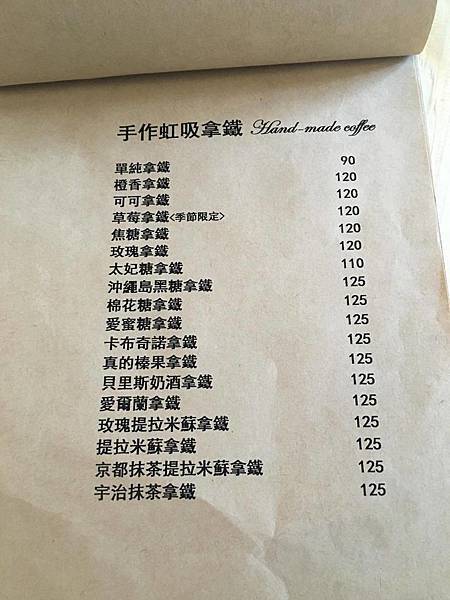 手作虹吸拿鐵 Hand-made coffee
單純拿鐵 90
橙香拿鐵 120
可可拿鐵 120
草莓拿鐵<季節限定> 120
焦糖拿鐵 120
玫瑰拿鐵 120
太妃糖拿鐵 110
沖繩島黑糖拿鐵 125
棉花糖拿鐵 125
愛蜜糖拿鐵 125
卡布奇諾拿鐵 125
真的榛果拿鐵 125
貝里斯奶酒拿鐵 125
愛爾蘭拿鐵 125
玫瑰提拉米蘇拿鐵 125
提拉米蘇拿鐵 125
京都抹茶提拉米蘇拿鐵 125
宇治抹茶拿鐵 125